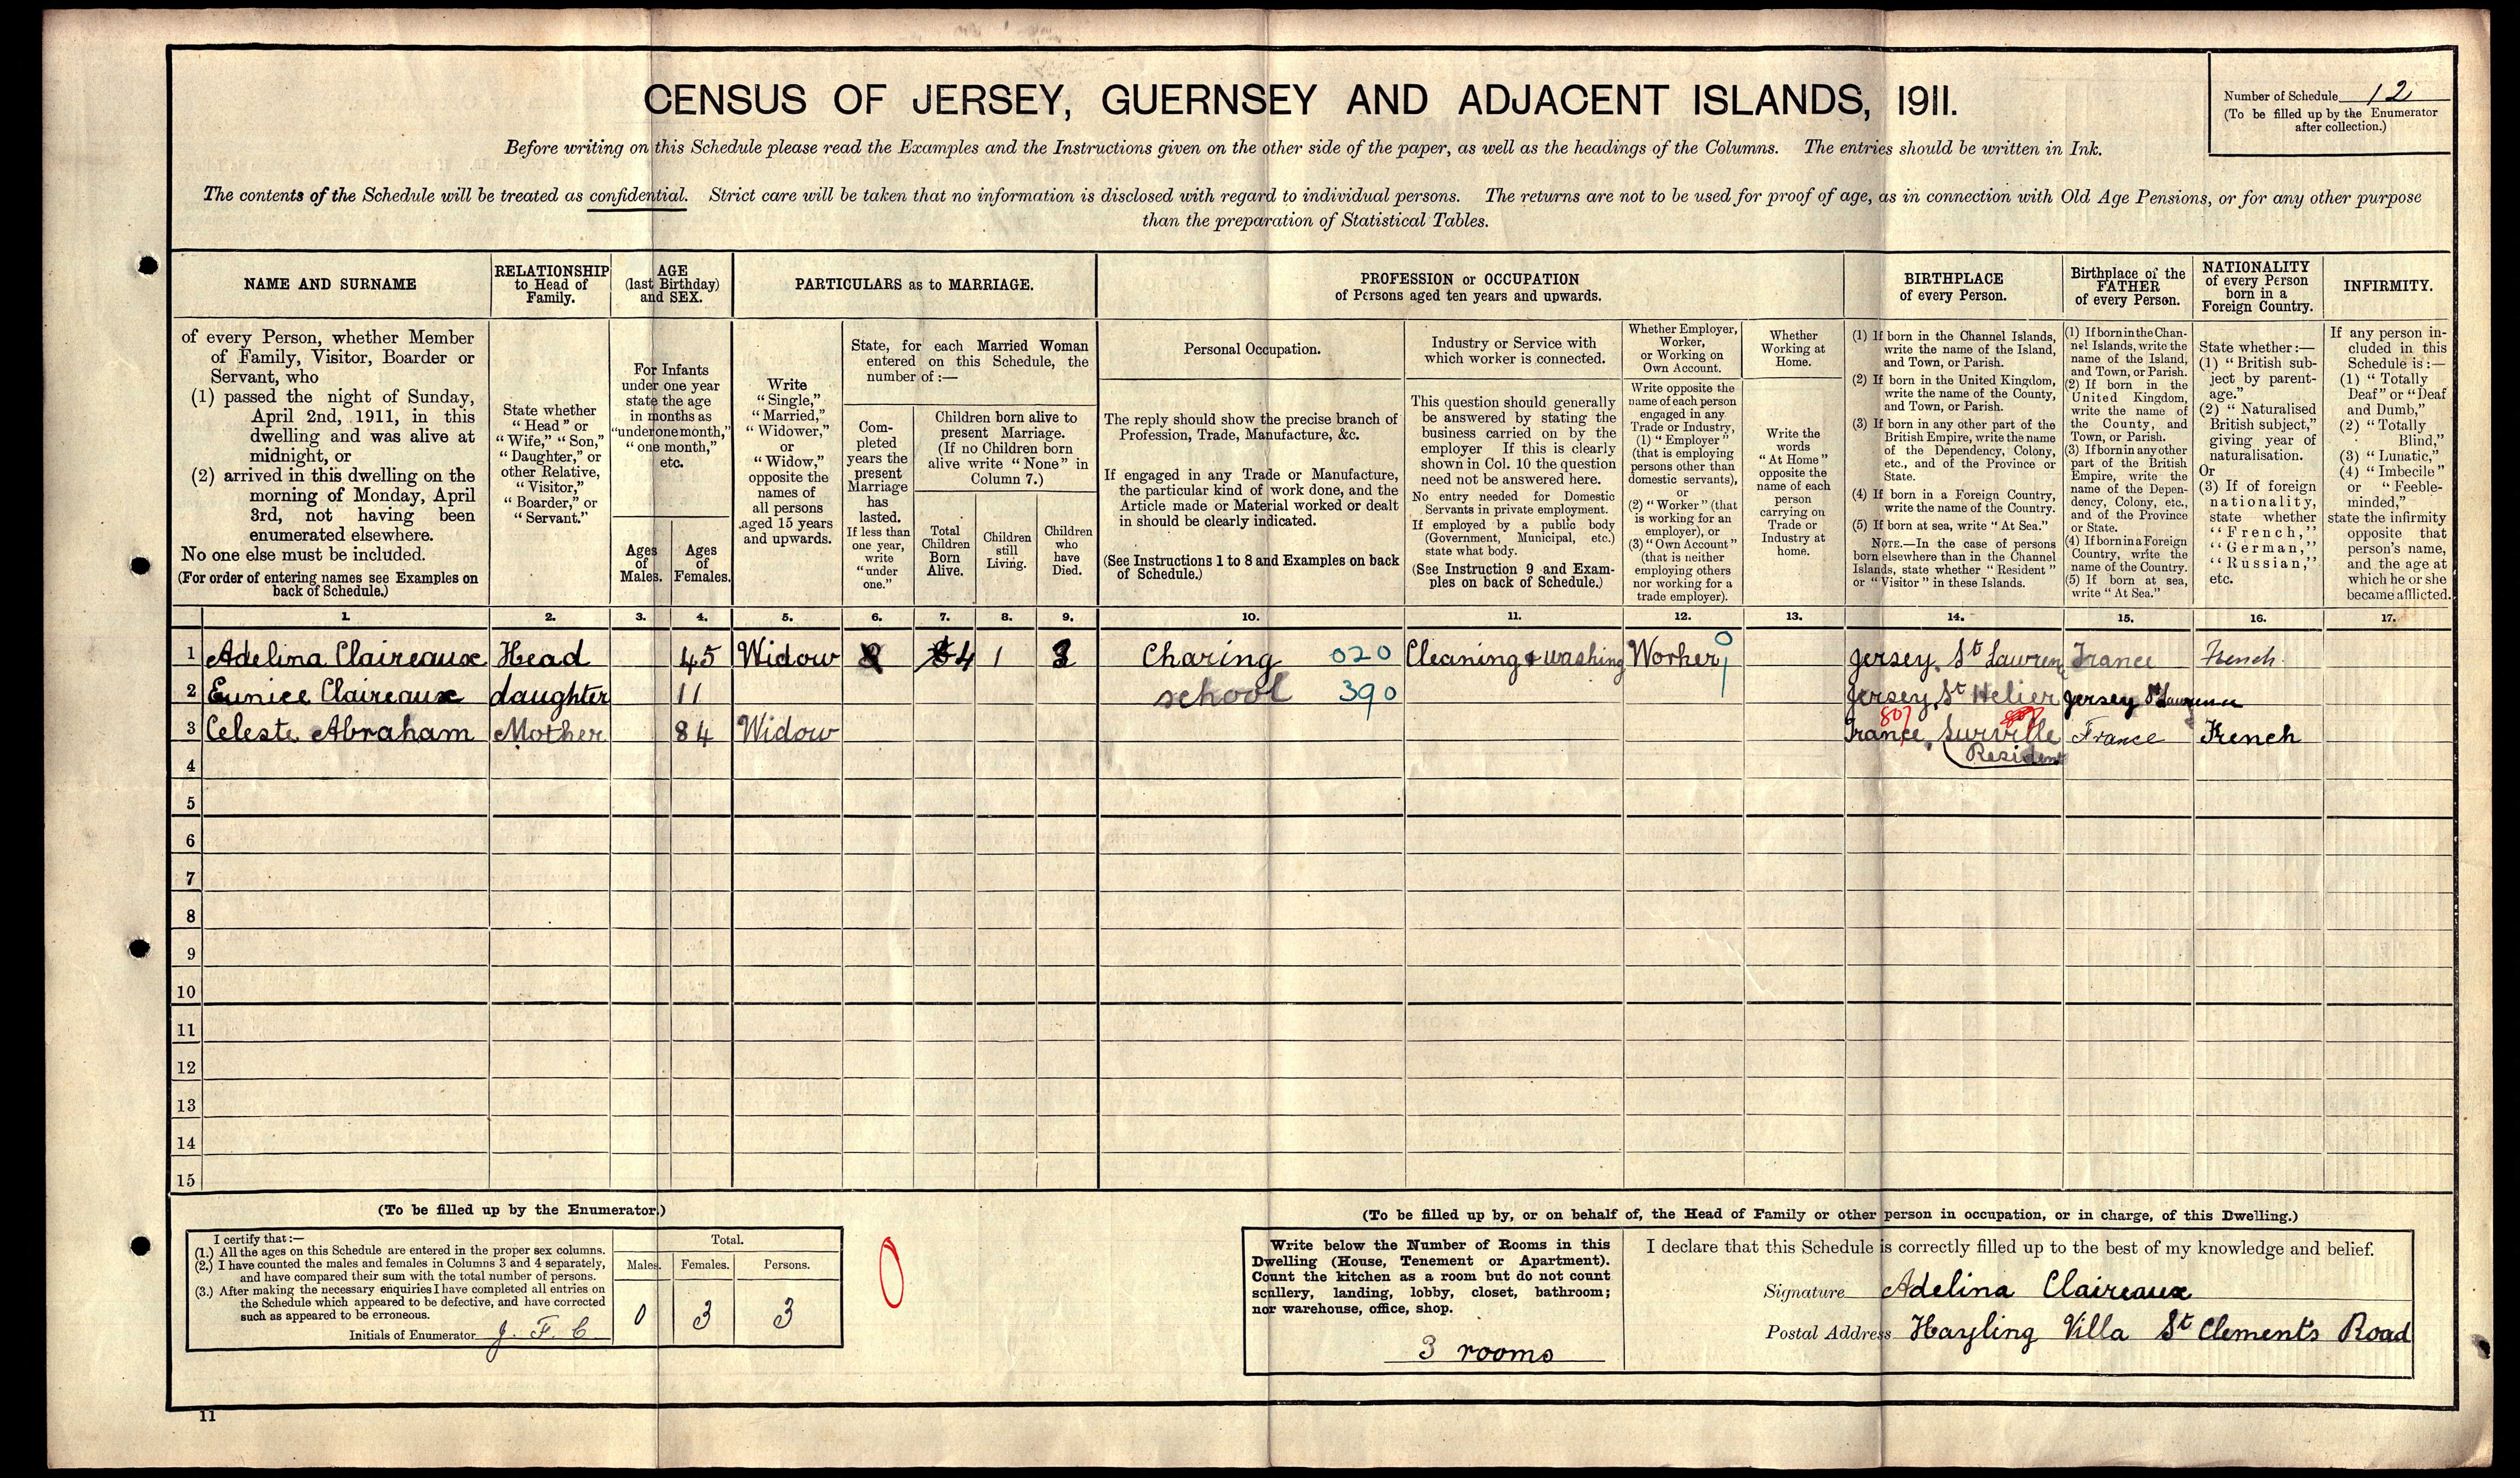 CENSUS OF JERSEY, GUERNSEY AND ADJACENT ISLANDS, 1911.
Number of Schedule 12
(To be filled up by the Enumerator
after collection.)
Before writing on this Schedule please read the Examples and the Instructions given on the other side of the paper, as well as the headings of the Columns. The entries should be written in Ink.
The contents of the Schedule will be treated as confidential. Strict care will be taken that no information is disclosed with regard to individual persons. The returns are not to be used for proof of age, as in connection with Old Age Pensions, or for any other purpose
than the preparation of Statistical Tables.
NAME AND SURNAME
of every Person, whether Member
of Family, Visitor, Boarder or
Servant, who
(1) passed the night of Sunday,
April 2nd, 1911, in this
dwelling and was alive at
midnight, or
(2) arrived in this dwelling on the
morning of Monday, April
3rd, not having been
enumerated elsewhere.
No one else must be included.
(For order of entering names see Examples on
back of Schedule.)
RELATIONSHIP
to Head of
Family.
State whether
"Head" or
"Wife," "Son,"
"Daughter," or
other Relative,
"Visitor,"
"Boarder," or
"Servant."
AGE
(last Birthday)
and SEX.
For Infants
under one year
state the age
in months as
"under one month,"
"one month,"
etc.
Ages
of
Males.
Ages
of
Females.
PARTICULARS as to MARRIAGE.
Write
"Single,"
"Married,"
"Widower,"
or
"Widow,"
opposite the
names of
all persons
aged 15 years
and upwards.
State, for each Married Woman
entered on this Schedule, the
number of :—
Com-
pleted
years the
present
Marriage
has
lasted.
If less than
one year,
write
"under
one."
Children born alive to
present Marriage.
(If no Children born
alive write "None" in
Column 7.)
Total
Children
Born
Alive.
Children
still
Living.
Children
who
have
Died.
PROFESSION or OCCUPATION
of Persons aged ten years and upwards.
Personal Occupation.
The reply should show the precise branch of
Profession, Trade, Manufacture, &c.
If engaged in any Trade or Manufacture,
the particular kind of work done, and the
Article made or Material worked or dealt
in should be clearly indicated.
(See Instructions 1 to 8 and Examples on back
of Schedule.)
Industry or Service with
which worker is connected.
This question should generally
be answered by stating the
business carried on by the
employer If this is clearly
shown in Col. 10 the question
need not be answered here.
No entry needed for Domestic
Servants in private employment.
If employed by a public body
(Government, Municipal, etc.)
state what body.
(See Instruction 9 and Exam-
ples on back of Schedule.)
Whether Employer,
Worker,
or Working on
Own Account.
Write opposite the
name of each person
engaged in any
Trade or Industry,
(1) "Employer"
(that is employing
persons other than
domestic servants),
or
(2) "Worker" (that
is working for an
employer), or
(3) "Own Account"
(that is neither
employing others
nor working for a
trade employer).
Whether
Working at
Home.
Write the
words
"At Home"
opposite the
name of each
person
carrying on
Trade or
Industry at
home.
BIRTHPLACE
of every Person.
(1) If born in the Channel Islands,
write the name of the Island,
and Town, or Parish.
(2) If born in the United Kingdom,
write the name of the County,
and Town, or Parish.
(3) If born in any other part of the
British Empire, write the name
of the Dependency, Colony,
etc., and of the Province or
State.
(4) If born in a Foreign Country,
write the name of the Country.
(5) If born at sea, write "At Sea."
NOTE.—In the case of persons
born elsewhere than in the Channel
Islands, state whether "Resident"
or "Visitor" in these Islands.
Birthplace of the
FATHER
of every Person.
(1) If born in the Chan-
nel Islands, write the
name of the Island,
and Town, or Parish.
(2) If born in the
United Kingdom,
write the name of
the County, and
Town, or Parish.
(3) If born in any other
part of the British
Empire, write the
name of the Depen-
dency, Colony, etc.,
and of the Province
or State.
(4) If born in a Foreign
Country, write the
name of the Country.
(5) If born at sea,
write "At Sea."
NATIONALITY
of every Person
born in a
Foreign Country.
State whether:—
(1) "British sub-
ject by parent-
age."
(2) "Naturalised
British subject,"
giving year of
naturalisation.
Or
(3) If of foreign
nationality,
state whether
"French,"
"German,"
"Russian,"
etc.
INFIRMITY.
If any person in-
cluded in this
Schedule is:—
(1) "Totally
Deaf" or "Deaf
and Dumb,"
(2) "Totally
Blind,"
(3) "Lunatic,"
(4) "Imbecile"
or "Feeble-
minded,"
state the infirmity
opposite that
person's name,
and the age at
which he or she
became afflicted.
1. 2. 3. 4. 5. 6. 7. 8. 9. 10. 11. 12. 13. 14. 15. 16. 17.
1 Adelina Claireaux Head 45 Widow 4 1 3 Charing 020 Cleaning & washing Worker Jersey, St Lawren France French
2 Eunice Claireaux daughter 11 school 390 Jersey, St Helier Jersey St Lawrence
3 Celeste Abraham Mother 84 Widow 807 France, Surville France French
4 Resident
5
6
7
8
9
10
11
12
13
14
15
(To be filled up by the Enumerator.)
I certify that:—
(1.) All the ages on this Schedule are entered in the proper sex columns.
(2.) I have counted the males and females in Columns 3 and 4 separately,
and have compared their sum with the total number of persons.
(3.) After making the necessary enquiries I have completed all entries on
the Schedule which appeared to be defective, and have corrected
such as appeared to be erroneous.
Initials of Enumerator J. F. C.
Total.
Males. Females. Persons.
0 3 3
0
(To be filled up by, or on behalf of, the Head of Family or other person in occupation, or in charge, of this Dwelling.)
Write below the Number of Rooms in this
Dwelling (House, Tenement or Apartment).
Count the kitchen as a room but do not count
scullery, landing, lobby, closet, bathroom;
nor warehouse, office, shop.
3 rooms
I declare that this Schedule is correctly filled up to the best of my knowledge and belief.
Signature Adelina Claireaux
Postal Address Hayling Villa St Clements Road
11